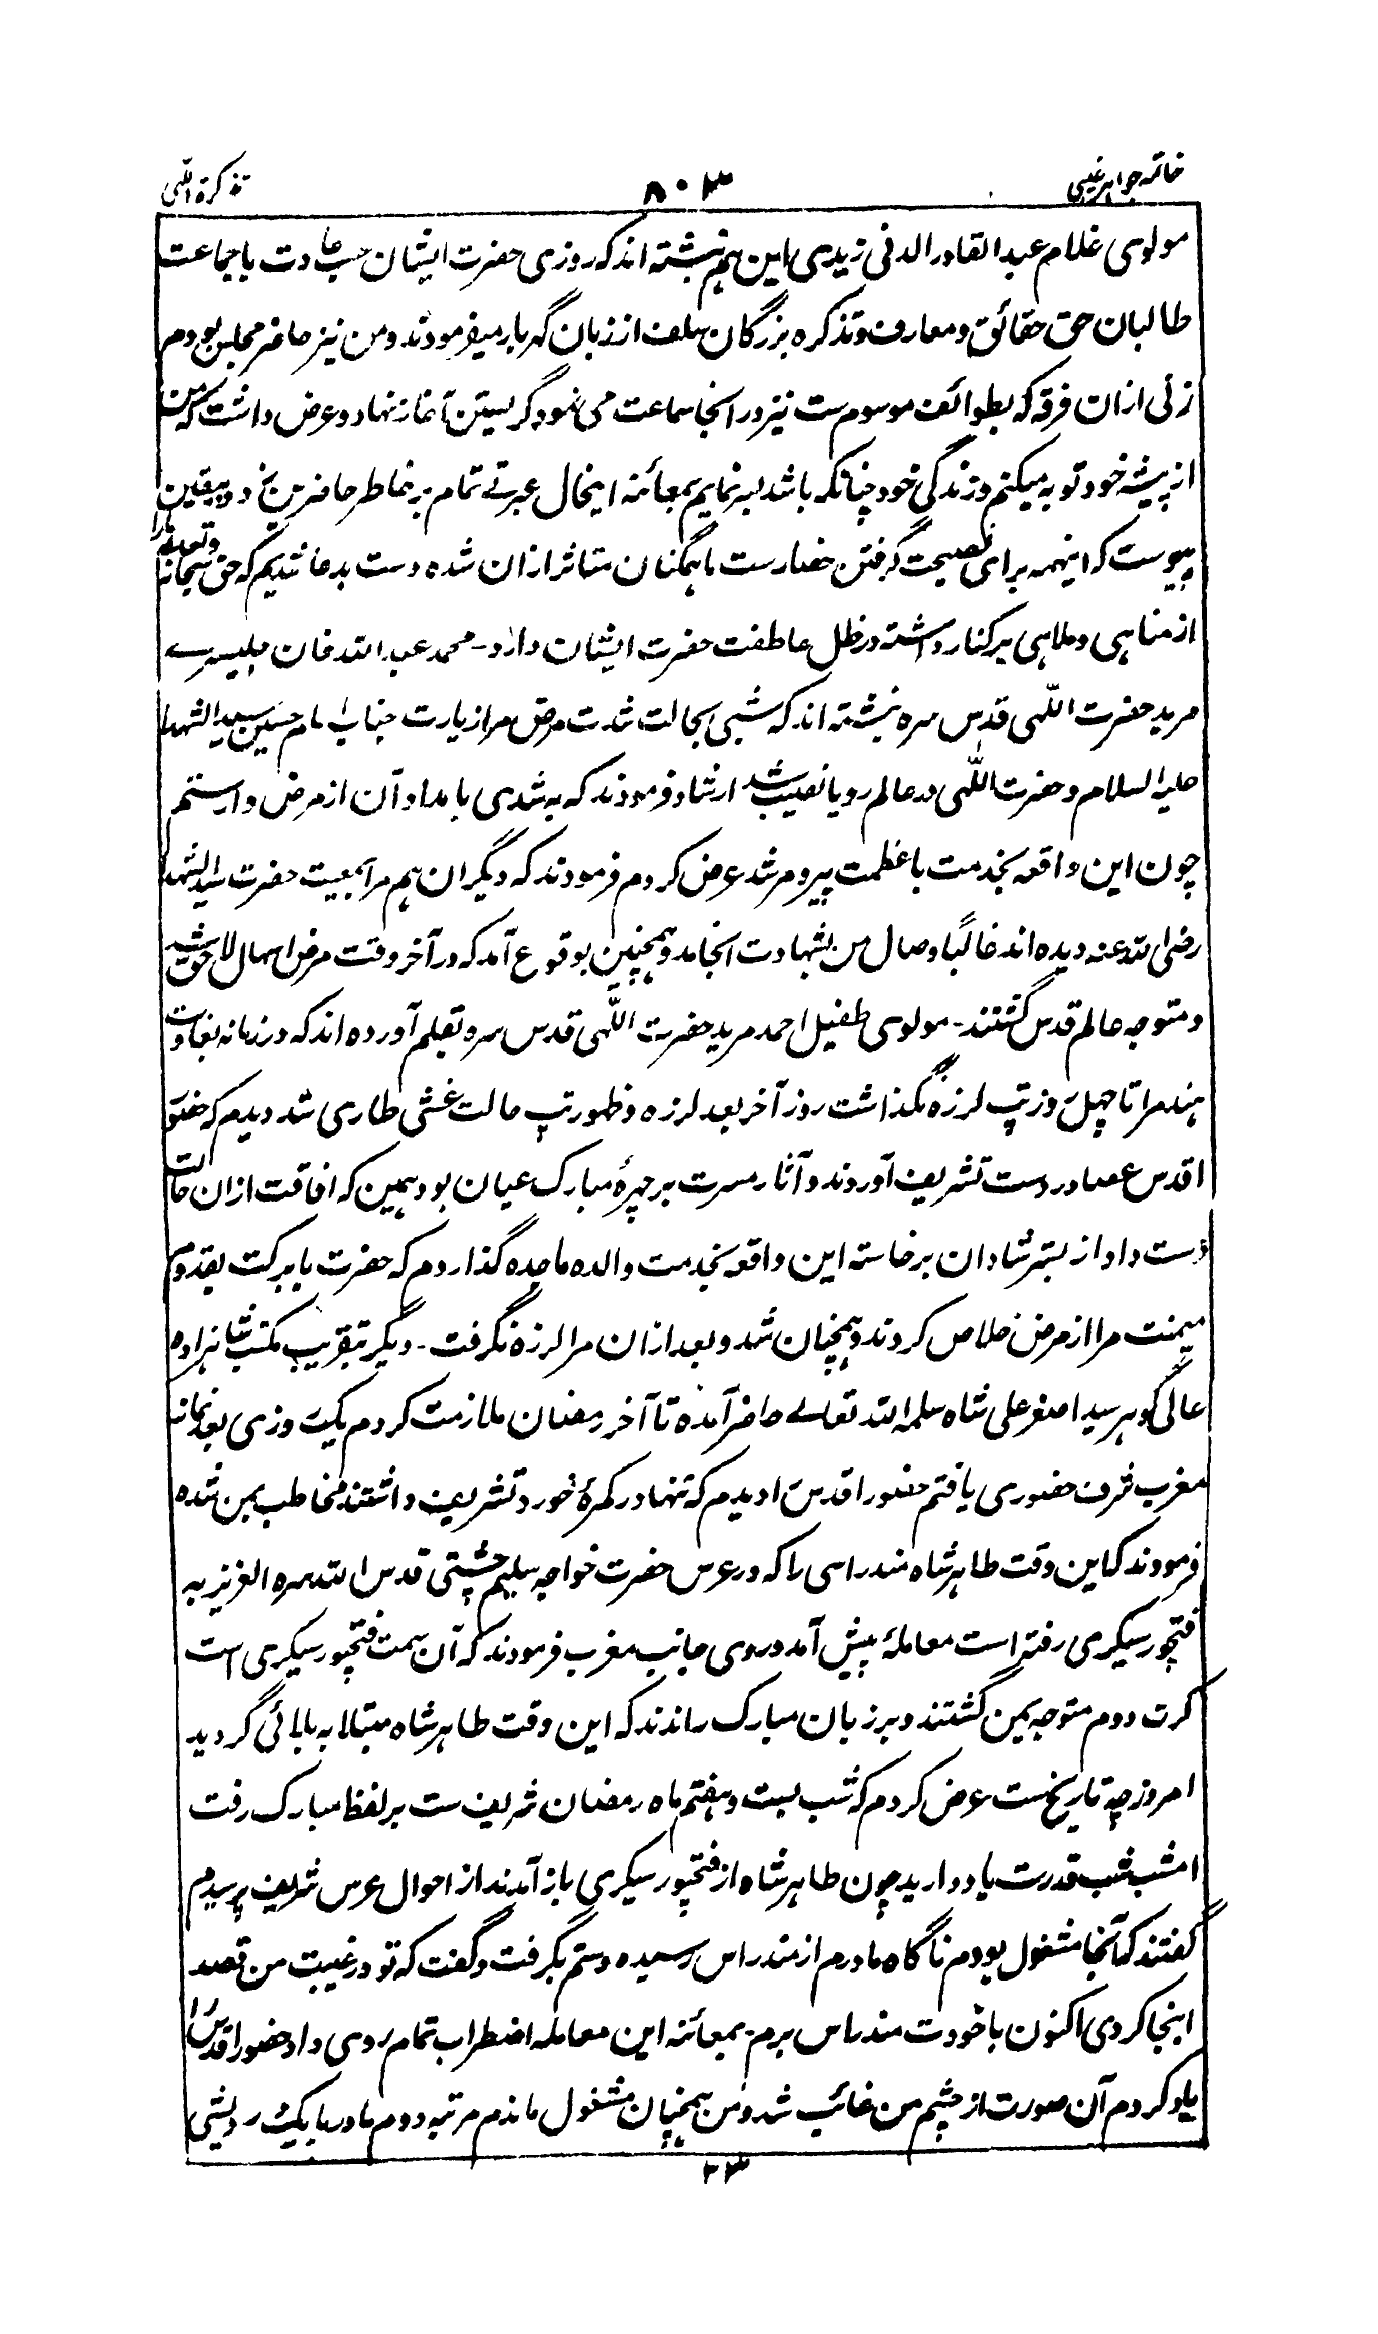 خاتمہ جواہر غیبی
۸۰۳
تذکرۃ اللّٰہی
مولوی غلام عبد القادر الدنی زیدی این ہم نبشتہ اند کہ روزی حضرت ایشان حسب عادت با جماعت
طالبان حق حقائق و معارف و تذکرہ بزرگان سلف از زبان گہر بار میفرمودند و من نیز حاضر مجلس بودم
زنی ازان فرقہ کہ بطوائف موسوم ست نیز در انجا سماعت می نمود گریستن آغاز نہاد و عرض داشت کہ من
از پیشہ خود توبہ میکنم و زندگی خود چنانکہ باشد بسر نمایم بمعائنہ اینحال عبرتے تمام بر خاطر حاضرین رخ داد بیقین
پیوست کہ اینہمہ برای نصیحت گرفتن حضارست ما ہمگنان متاثر ازان شدہ دست بدعا شدیم کہ حق سبحانہ و تعالے ما را
از مناہی و ملاہی برکنار داشتہ در ظل عاطفت حضرت ایشان دارد - محمد عبد اللہ خان جلیسرے
مرید حضرت اللّٰہی قدس سرہ نبشتہ اند کہ شبی بحالت شدت مرض مرا زیارت جناب امام حسین سید الشہدا
علیہ السلام و حضرت اللّٰہی در عالم رویا نصیب شد ارشاد فرمودند کہ بہ شدی بامداد آن از مرض وارستم
چون این واقعہ بخدمت با عظمت پیر و مرشد عرض کردم فرمودند کہ دیگران ہم مرا بمعیت حضرت سید الشہدا
رضی اللہ عنہ دیدہ اند غالبا وصال من بشہادت انجامد و ہمچنین بوقوع آمد کہ در آخر وقت مرض اسہال لاحق شد
و متوجہ عالم قدس گشتند - مولوی طفیل احمد مرید حضرت اللّٰہی قدس سرہ بقلم آوردہ اند کہ در زمانہ بغاوت
ہند مرا تا چہل روز تپ لرزہ نگذاشت روز آخر بعد لرزہ و ظہور تپ حالت غشی طاری شد دیدم کہ حضور
اقدس عصا در دست تشریف آوردند و آثار مسرت بر چہرۂ مبارک عیان بود ہمین کہ افاقت ازان حالت
دست داد از بستر شادان برخاستہ این واقعہ بخدمت والدہ ماجدہ گذاردم کہ حضرت با برکت بقدوم
میمنت مرا از مرض خلاص کردند و ہمچنان شد و بعد ازان مرا لرزہ نگرفت - دیگر بتقریب مکتب شاہزادہ
عالی گوہر سید اصغر علی شاہ سلمہ اللہ تعالے حاضر آمدہ تا آخر رمضان ملازمت کردم یک روزی بعد نماز
مغرب شرف حضوری یافتم حضور اقدس را دیدم کہ تنہا در کمرۂ خورد تشریف داشتند مخاطب بمن شدہ
فرمودند کہ این وقت طاہر شاہ مندراسی را کہ در عرس حضرت خواجہ سلیم چشتی قدس اللہ سرہ العزیز بہ
فتحپور سیکری رفتہ است معاملۂ پیش آمد و روی جانب مغرب فرمودند کہ آن سمت فتحپور سیکری است
کرت دوم متوجہ یمن گشتند و بر زبان مبارک راندند کہ این وقت طاہر شاہ مبتلا بہ بلائی گردید
امروز چہ تاریخست عرض کردم کہ شب بست و ہفتم ماہ رمضان شریف ست بر لفظ مبارک رفت
امشب شب قدرست یاد دارید چون طاہر شاہ از فتحپور سیکری باز آمدند از احوال عرس شریف پرسیدم
گفتند کہ آنجا مشغول بودم ناگاہ مادرم از مندراس رسیدہ دستم بگرفت و گفت کہ تو در غیبت من قصد
اینجا کردی اکنون با خودت مندراس برم - بمعائنہ این معاملہ اضطراب تمام روی داد حضور اقدس را
یاد کردم آن صورت از چشم من غائب شد و من ہمچنان مشغول ماندم مرتبہ دوم مادر با یک درویشی
۲۳